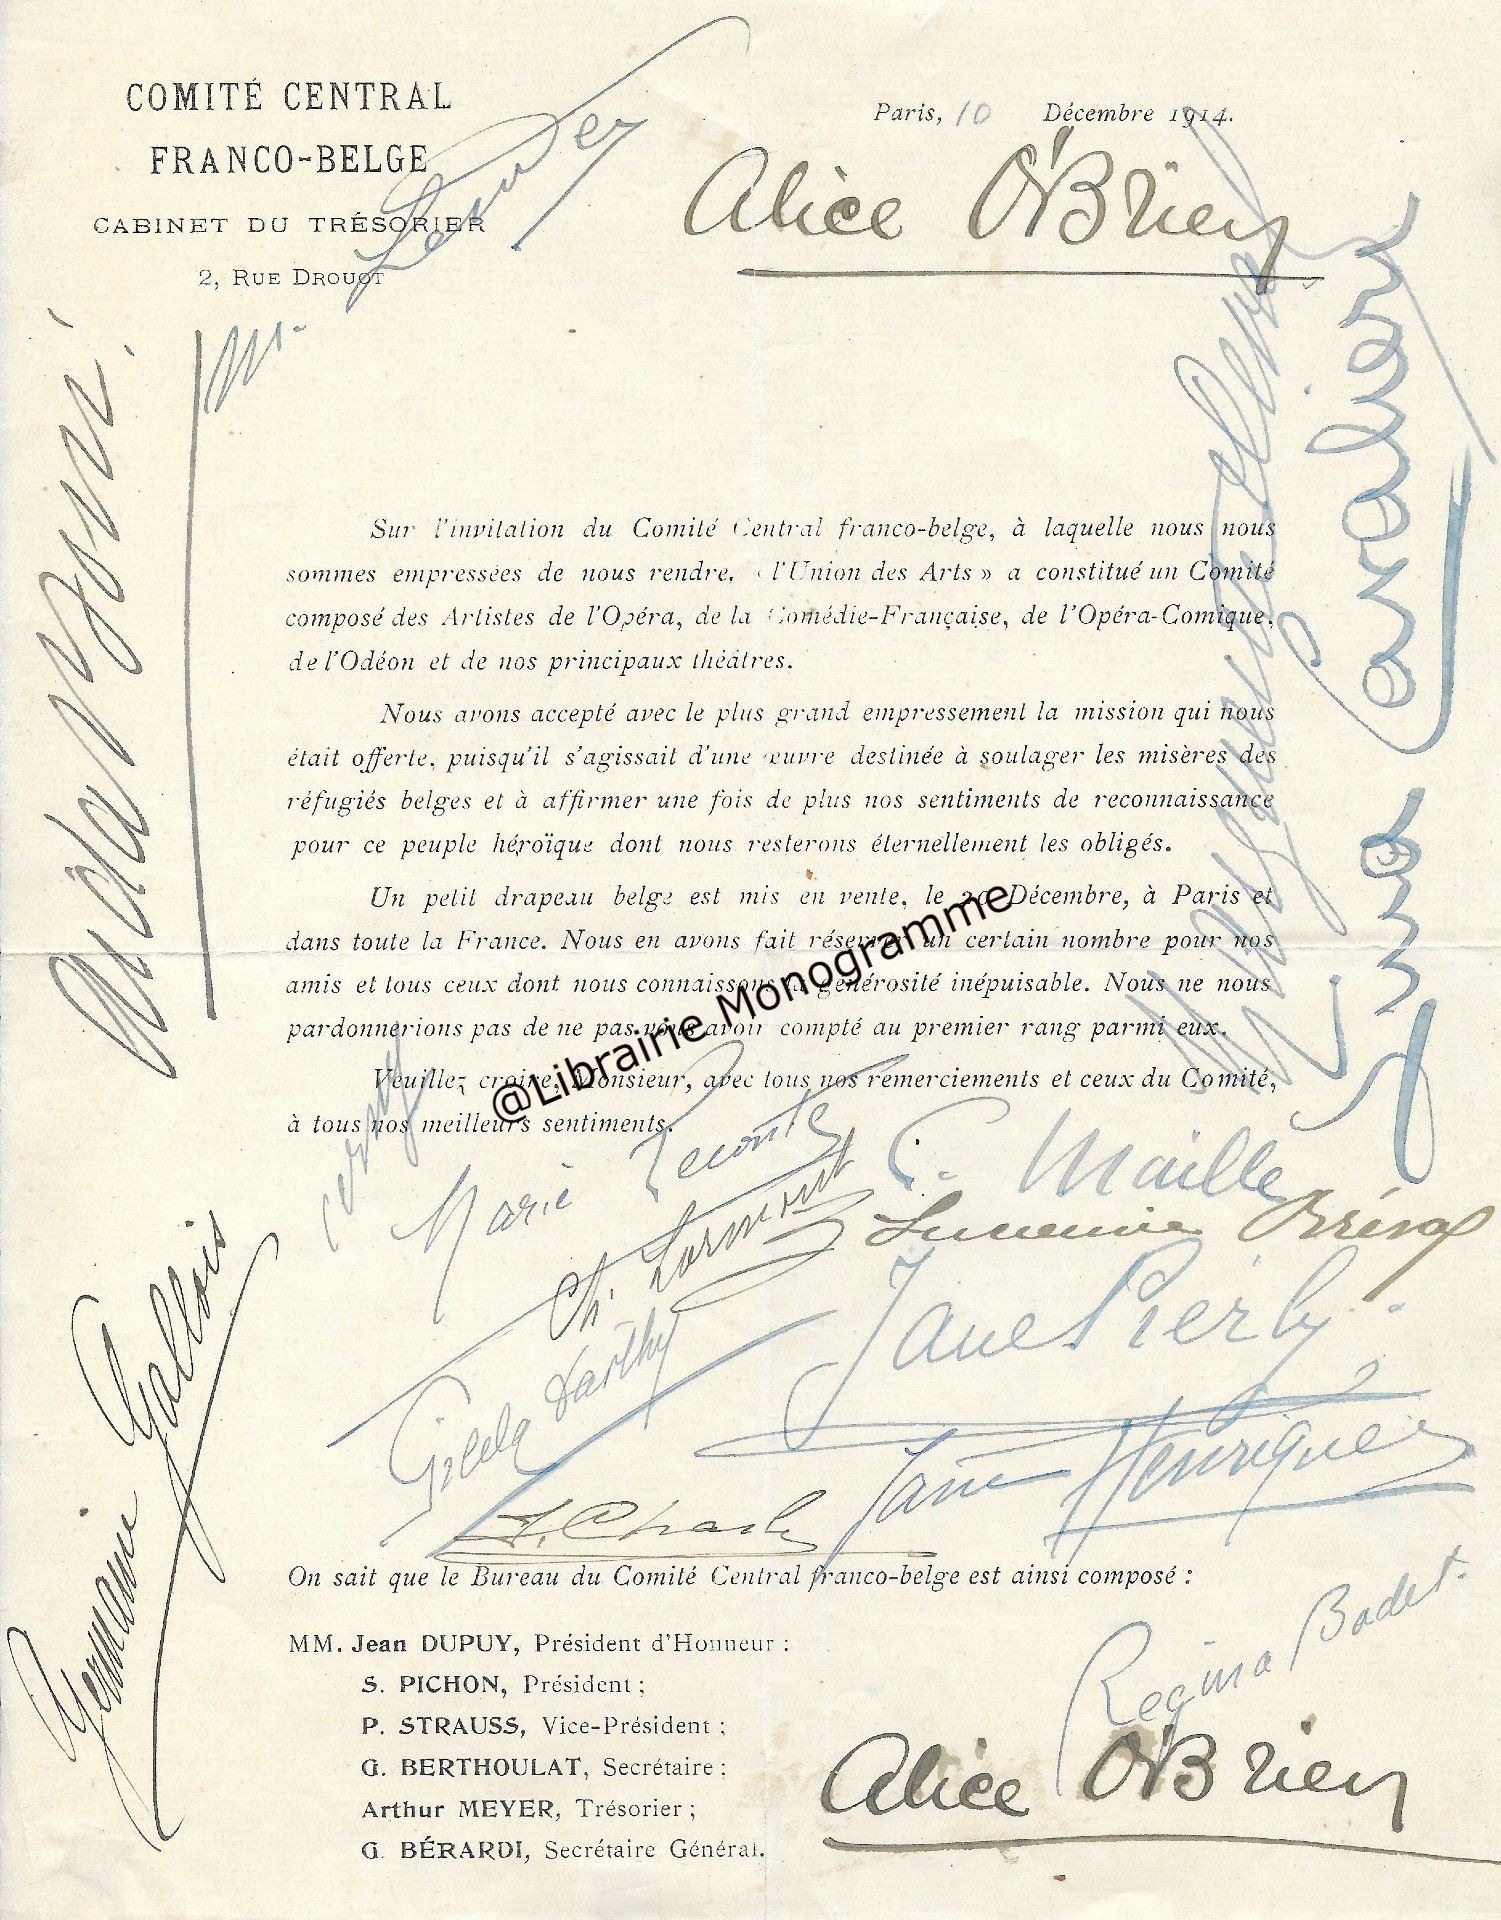 COMITÉ CENTRAL
FRANCO-BELGE
CABINET DU TRÉSORIER
2, RUE DROUOT
Paris, 10 Décembre 1914.
Alice O'Brien
Sur l'invitation du Comité Central franco-belge, à laquelle nous nous
sommes empressées de nous rendre, « l'Union des Arts » a constitué un Comité
composé des Artistes de l'Opéra, de la Comédie-Française, de l'Opéra-Comique,
de l'Odéon et de nos principaux théâtres.
Nous avons accepté avec le plus grand empressement la mission qui nous
était offerte, puisqu'il s'agissait d'une œuvre destinée à soulager les misères des
réfugiés belges et à affirmer une fois de plus nos sentiments de reconnaissance
pour ce peuple héroïque dont nous resterons éternellement les obligés.
Un petit drapeau belge est mis en vente, le 20 Décembre, à Paris et
dans toute la France. Nous en avons fait réserver un certain nombre pour nos
amis et tous ceux dont nous connaissons la générosité inépuisable. Nous ne nous
pardonnerions pas de ne pas vous avoir compté au premier rang parmi eux.
Veuillez croire, Monsieur, avec tous nos remerciements et ceux du Comité,
à tous nos meilleurs sentiments.
@Librairie Monogramme
Lina Cavalieri
Marie Leconte
C. Maille
Ch. Lormont
Lucienne Bréval
Jane Pierly
Gilda Darthy
Jane Henriquez
Germaine Gallois
On sait que le Bureau du Comité Central franco-belge est ainsi composé :
MM. Jean DUPUY, Président d'Honneur ;
S. PICHON, Président ;
P. STRAUSS, Vice-Président ;
G. BERTHOULAT, Secrétaire ;
Arthur MEYER, Trésorier ;
G. BÉRARDI, Secrétaire Général.
Regina Badet.
Alice O'Brien